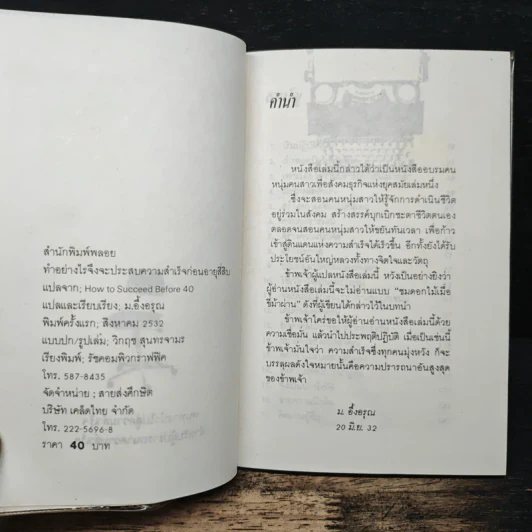 สำนักพิมพ์พลอย
ทำอย่างไรจึงจะประสบความสำเร็จก่อนอายุสี่สิบ
แปลจาก; How to Succeed Before 40
แปลและเรียบเรียง; ม.อึ้งอรุณ
พิมพ์ครั้งแรก; สิงหาคม 2532
แบบปก/รูปเล่ม; วิกฤช สุนทรจามร
เรียงพิมพ์; รัชคอมพิวกราฟฟิค
โทร. 587-8435
จัดจำหน่าย ; สายส่งศึกษิต
บริษัท เคล็ดไทย จำกัด
โทร. 222-5696-8
ราคา 40 บาท
คำนำ
หนังสือเล่มนี้กล่าวได้ว่าเป็นหนังสืออบรมคน
หนุ่มคนสาวเพื่อสังคมธุรกิจแห่งยุคสมัยเล่มหนึ่ง
ซึ่งจะสอนคนหนุ่มสาวให้รู้จักการดำเนินชีวิต
อยู่ร่วมในสังคม สร้างสรรค์บุกเบิกชะตาชีวิตตนเอง
ตลอดจนสอนคนหนุ่มสาวให้ขยันทันเวลา เพื่อก้าว
เข้าสู่ดินแดนแห่งความสำเร็จได้เร็วขึ้น อีกทั้งยังได้รับ
ประโยชน์อันใหญ่หลวงทั้งทางจิตใจและวัตถุ
ข้าพเจ้าผู้แปลหนังสือเล่มนี้ หวังเป็นอย่างยิ่งว่า
ผู้อ่านหนังสือเล่มนี้จะไม่อ่านแบบ “ชมดอกไม้เมื่อ
ขี่ม้าผ่าน” ดังที่ผู้เขียนได้กล่าวไว้ในบทนำ
ข้าพเจ้าใคร่ขอให้ผู้อ่านอ่านหนังสือเล่มนี้ด้วย
ความเชื่อมั่น แล้วนำไปประพฤติปฏิบัติ เมื่อเป็นเช่นนี้
ข้าพเจ้ามั่นใจว่า ความสำเร็จซึ่งทุกคนมุ่งหวัง ก็จะ
บรรลุผลดังใจหมายนั้นคือความปรารถนาอันสูงสุด
ของข้าพเจ้า
ม. อึ้งอรุณ
20 มิ.ย. 32